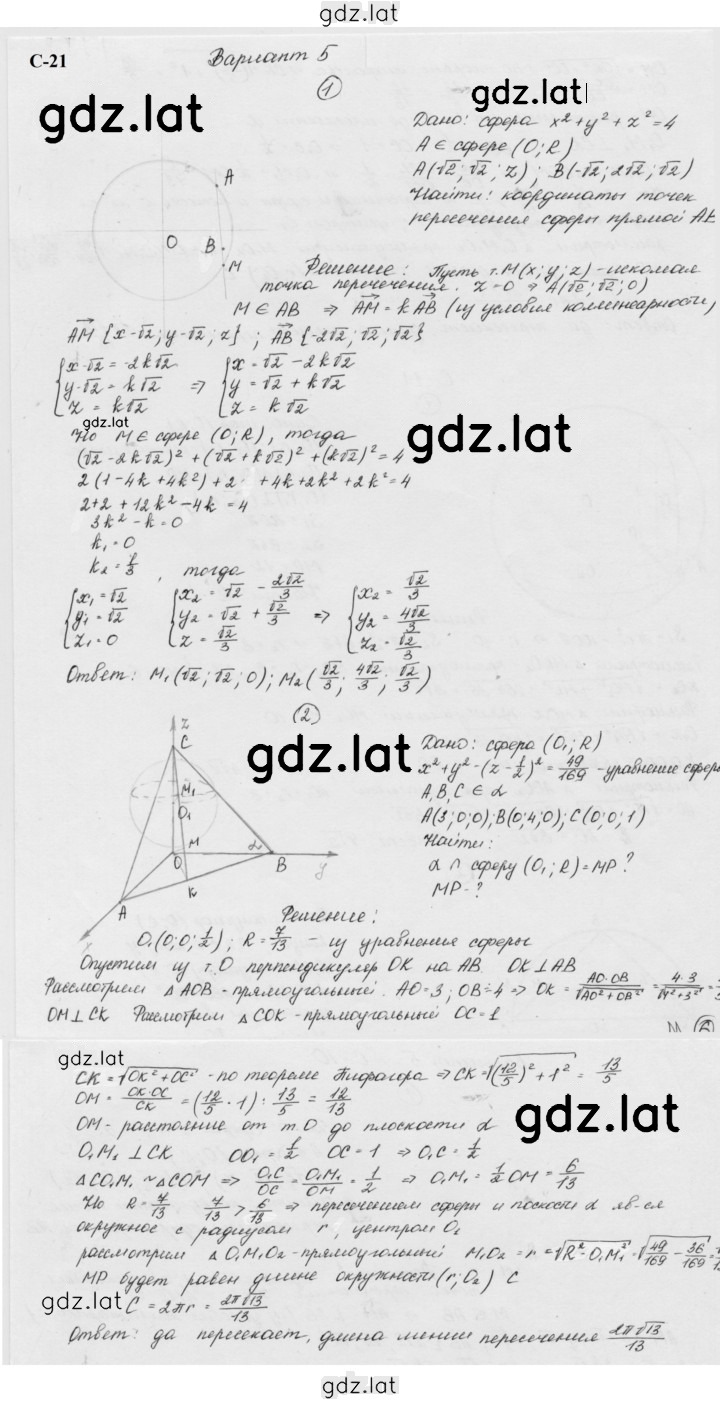 gdz.lat
С-21
Вариант 5
1
gdz.lat
gdz.lat
Дано: сфера x² + y² + z² = 4
A ∈ сфере (O; R)
A(√2; √2; z); B(-√2; 2√2; √2)
Найти: координаты точек
пересечения сферы прямой AB
A
O B
M
Решение: Пусть т. M(x; y; z) - искомая
точка пересечения. z = 0 ⇒ A(√2; √2; 0)
M ∈ AB ⇒ AM = k AB (из условия коллинеарности)
AM {x-√2; y-√2; z}; AB {-2√2; √2; √2}
{x-√2 = -2k√2 {x = √2 - 2k√2
{y-√2 = k√2 ⇒ {y = √2 + k√2
{z = k√2 {z = k√2
gdz.lat
gdz.lat
Но M ∈ сфере (O; R), тогда
(√2 - 2k√2)² + (√2 + k√2)² + (k√2)² = 4
2(1 - 4k + 4k²) + 2 + 4k + 2k² + 2k² = 4
2 + 2 + 12k² - 4k = 4
3k² - k = 0
k₁ = 0
k₂ = 1/3, тогда
{x₁ = √2 {x₂ = √2 - 2√2/3 {x₂ = √2/3
{y₁ = √2 {y₂ = √2 + √2/3 ⇒ {y₂ = 4√2/3
{z₁ = 0 {z = √2/3 {z₂ = √2/3
Ответ: M₁(√2; √2; 0); M₂(√2/3; 4√2/3; √2/3)
2
z
C
M₁
O₁
M
O α B y
K
A
x
gdz.lat
Дано: сфера (O₁; R)
x² + y² - (z - 1/2)² = 49/169 - уравнение сферы
A, B, C ∈ α
A(3; 0; 0); B(0; 4; 0); C(0; 0; 1)
Найти:
α ∩ сферу (O₁; R) = MP?
MP - ?
Решение:
O₁(0; 0; 1/2); R = 7/13 - из уравнения сферы
Опустим из т. O перпендикуляр OK на AB. OK ⊥ AB
Рассмотрим △AOB - прямоугольный. AO = 3; OB = 4 ⇒ OK = AO·OB/√(AO² + OB²) = 4·3/√(4² + 3²) =
OM ⊥ CK Рассмотрим △COK - прямоугольный OC = 1
gdz.lat
CK = √(OK² + OC²) - по теореме Пифагора ⇒ CK = √((12/5)² + 1²) = 13/5
OM = OK·OC/CK = (12/5 · 1) : 13/5 = 12/13
OM - расстояние от т. O до плоскости α
gdz.lat
O₁M₁ ⊥ CK OO₁ = 1/2 OC = 1 ⇒ O₁C = 1/2
△CO₁M₁ ~ △COM ⇒ O₁C/OC = O₁M₁/OM = 1/2 ⇒ O₁M₁ = 1/2 OM = 6/13
Но R = 7/13 7/13 > 6/13 ⇒ пересечением сферы и плоскости α яв-ся
окружное с радиусом r, центром O₂
рассмотрим △O₁M₁O₂ - прямоугольный M₁O₂ = r = √(R² - O₁M₁²) = √(49/169 - 36/169) =
MP будет равен длине окружности (r; O₂) C
gdz.lat
C = 2πr = 2π√13/13
Ответ: да пересекает, длина линии пересечения 2π√13/13
gdz.lat